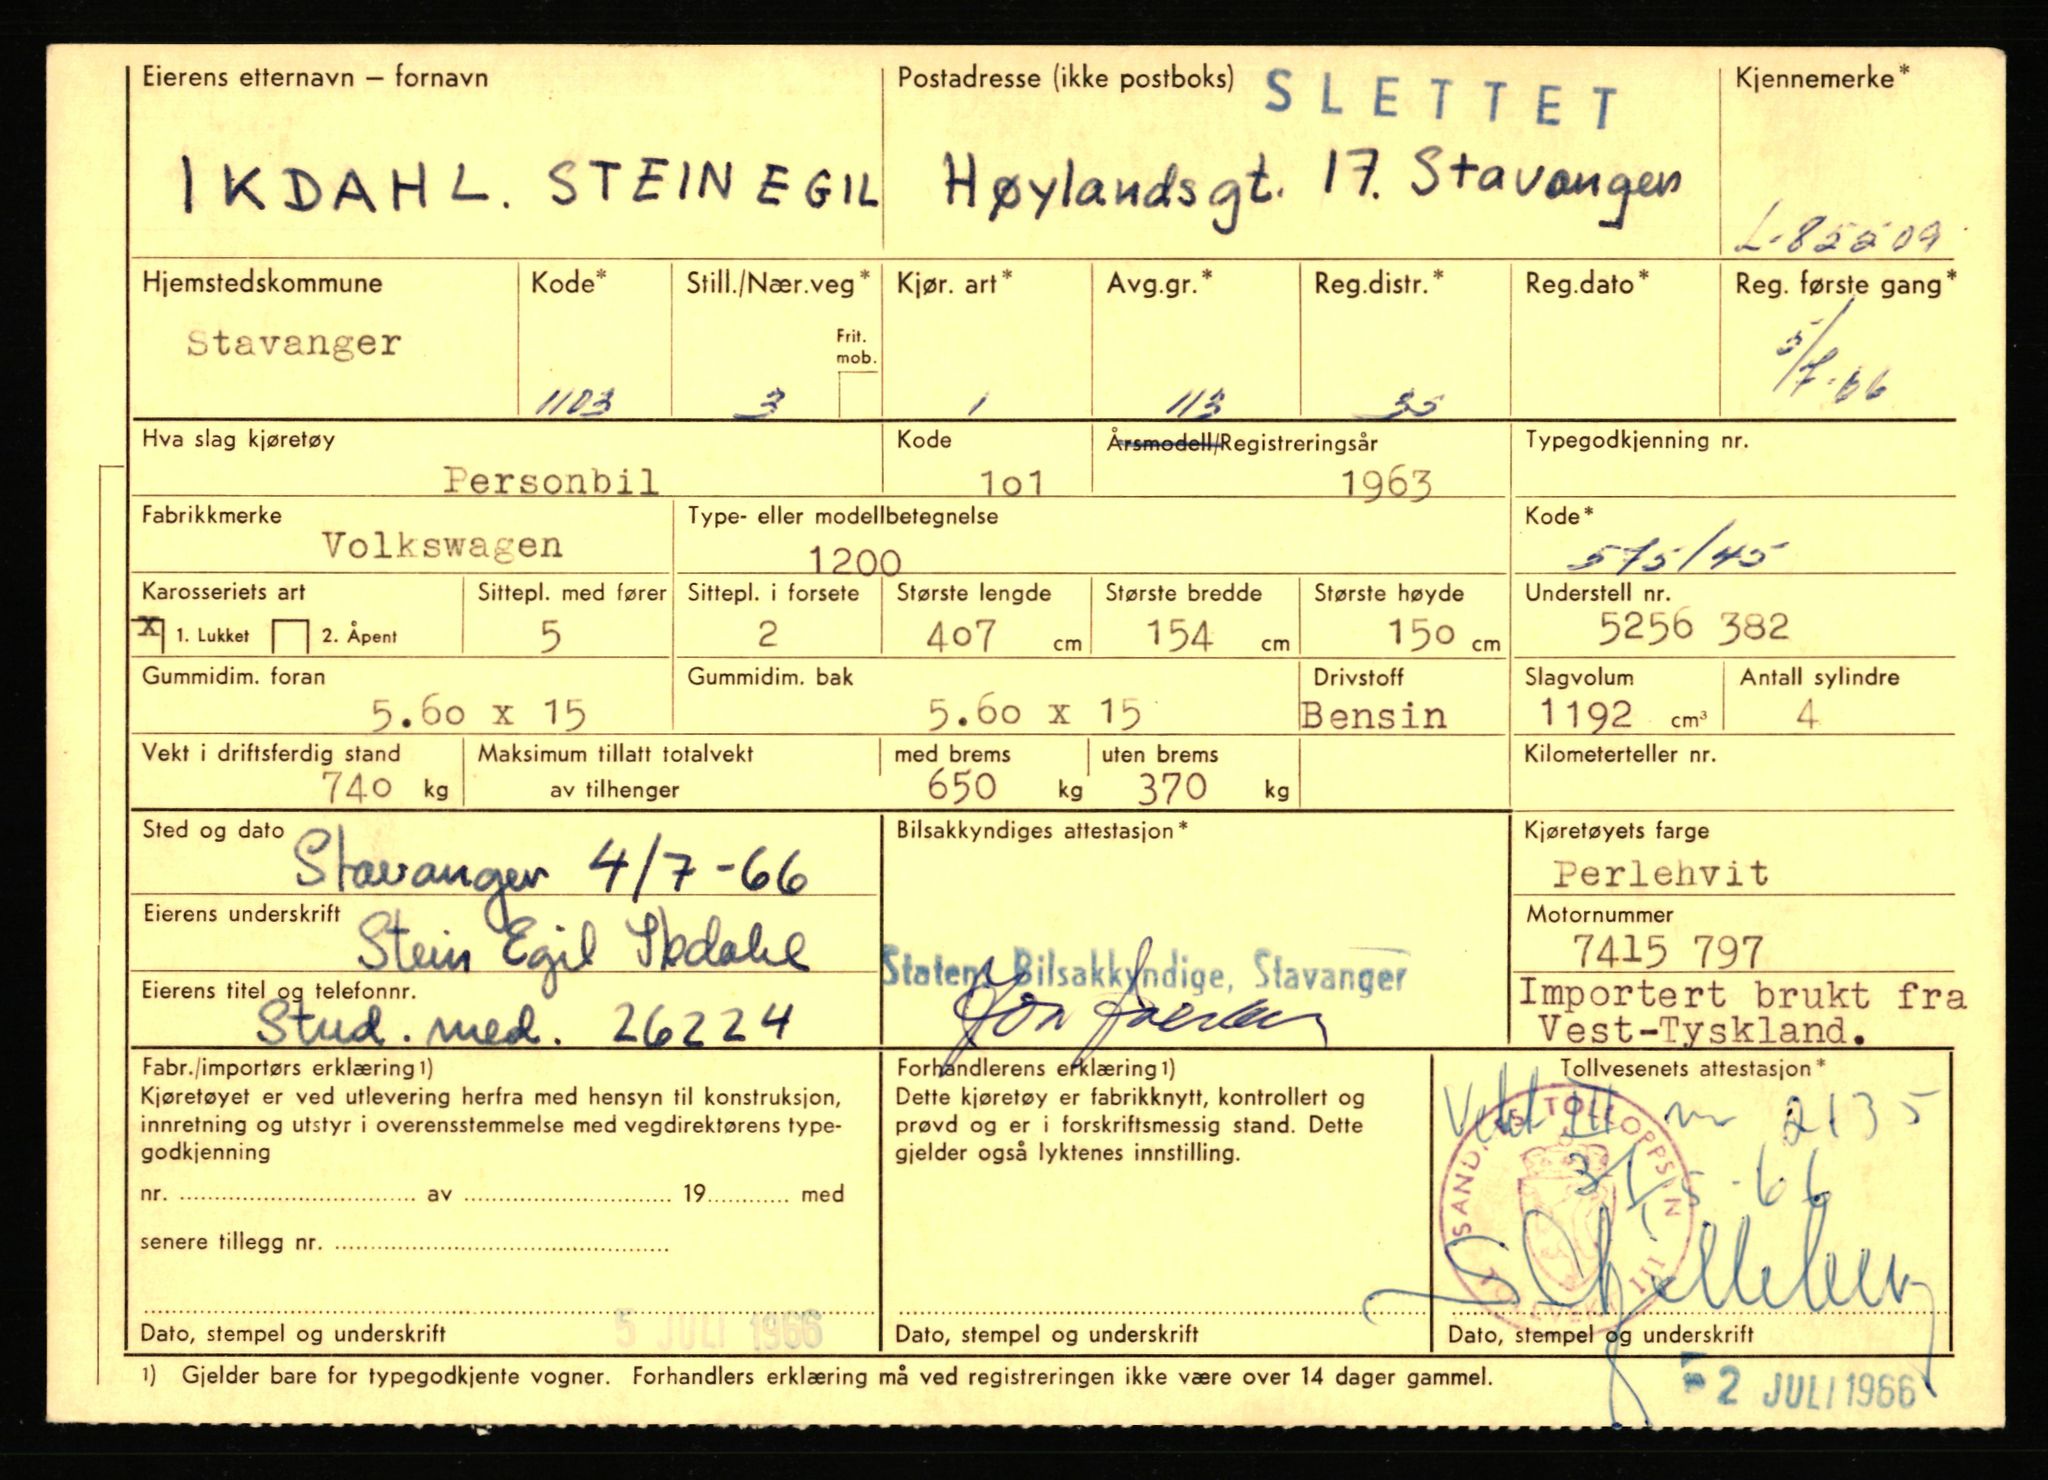 Eierens etternavn – fornavn
IKDAHL. STEIN EGIL
Postadresse (ikke postboks)
SLETTET
Høylandsgt. 17. Stavanger
Kjennemerke*
L-85509
Hjemstedskommune
Stavanger
Kode*
1103
Still./Nær.veg*
Frit.
mob.
3
Kjør. art*
1
Avg.gr.*
113
Reg.distr.*
35
Reg.dato*
Reg. første gang*
5/7-66
Hva slag kjøretøy
Personbil
Kode
1o1
Årsmodell/Registreringsår
1963
Typegodkjenning nr.
Fabrikkmerke
Volkswagen
Type- eller modellbetegnelse
1200
Kode*
575/45
Karosseriets art
X 1. Lukket 2. Åpent
Sittepl. med fører
5
Sittepl. i forsete
2
Største lengde
4o7 cm
Største bredde
154 cm
Største høyde
15o cm
Understell nr.
5256 382
Gummidim. foran
5.6o x 15
Gummidim. bak
5.6o x 15
Drivstoff
Bensin
Slagvolum
1192 cm³
Antall sylindre
4
Vekt i driftsferdig stand
74o kg
Maksimum tillatt totalvekt
av tilhenger
med brems
650 kg
uten brems
370 kg
Kilometerteller nr.
Sted og dato
Stavanger 4/7-66
Eierens underskrift
Stein Egil Ikdahl
Eierens titel og telefonnr.
Stud. med. 26224
Bilsakkyndiges attestasjon*
Statens Bilsakkyndige, Stavanger
Kjøretøyets farge
Perlehvit
Motornummer
7415 797
Importert brukt fra
Vest-Tyskland.
Fabr./importørs erklæring1)
Kjøretøyet er ved utlevering herfra med hensyn til konstruksjon,
innretning og utstyr i overensstemmelse med vegdirektørens type-
godkjenning
nr. av 19 med
senere tillegg nr.
5 JULI 1966
Dato, stempel og underskrift
Forhandlerens erklæring1)
Dette kjøretøy er fabrikknytt, kontrollert og
prøvd og er i forskriftsmessig stand. Dette
gjelder også lyktenes innstilling.
Dato, stempel og underskrift
Tollvesenets attestasjon*
nr 2135
31/5-66
Dato, stempel og underskrift
1) Gjelder bare for typegodkjente vogner. Forhandlers erklæring må ved registreringen ikke være over 14 dager gammel.
2 JULI 1966